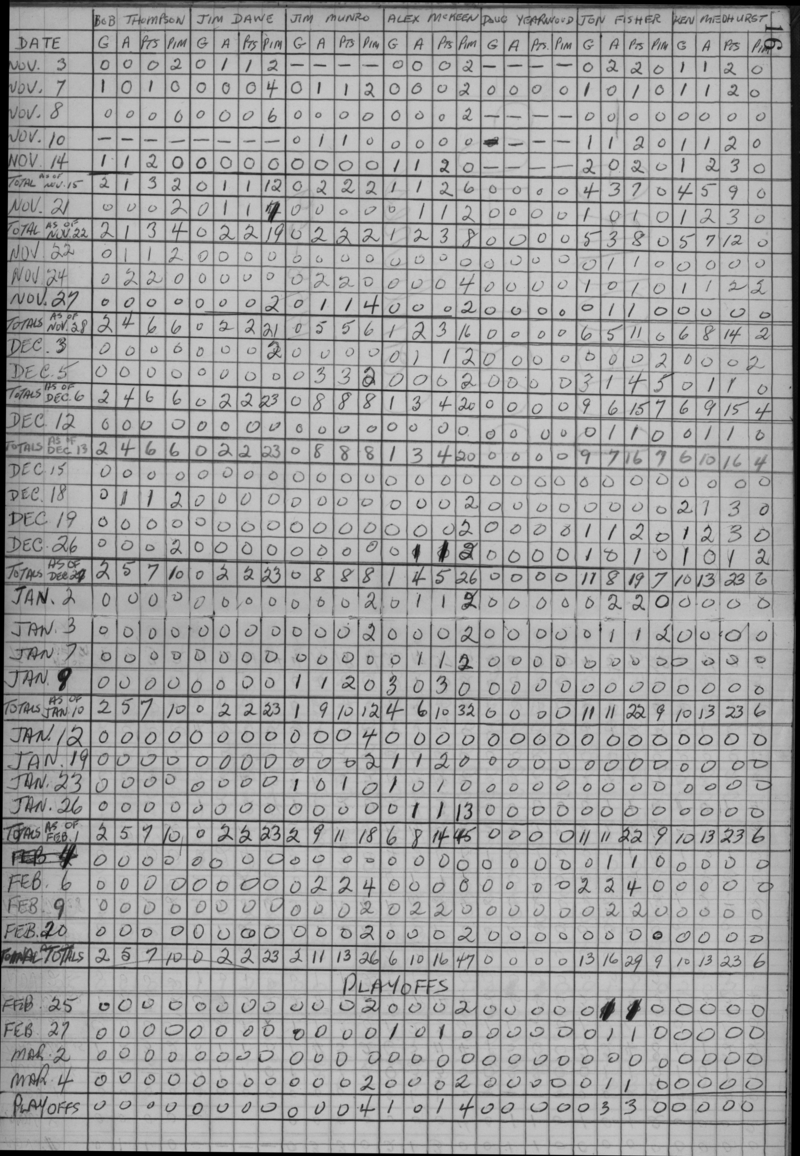 BOB THOMPSON JIM DAWE JIM MUNRO ALEX MCKEEN DOUG YEARWOOD JON FISHER KEN MEDHURST 16
DATE G A Pts Pim G A Pts Pim G A Pts Pim G A Pts Pim G A Pts Pim G A Pts Pim G A Pts Pim
NOV. 3 0 0 0 2 0 1 1 2 — — — — 0 0 0 2 0 2 2 0 1 1 2 0
NOV. 7 1 0 1 0 0 0 0 4 0 1 1 2 0 0 0 2 0 0 0 0 1 0 1 0 1 1 2 0
NOV. 8 0 0 0 0 0 0 0 6 0 0 0 0 0 0 0 2 — — — — 0 0 0 0 0 0 0 0
NOV. 10 — — — — — — — — 0 1 1 0 0 0 0 0 — — — — 1 1 2 0 1 1 2 0
NOV. 14 1 1 2 0 0 0 0 0 0 0 0 0 1 1 2 0 — — — — 2 0 2 0 1 2 3 0
TOTAL AS OF NOV. 15 2 1 3 2 0 1 1 12 0 2 2 2 1 1 2 6 0 0 0 0 4 3 7 0 4 5 9 0
NOV. 21 0 0 0 2 0 1 1 7 0 0 0 0 0 1 1 2 0 0 0 0 1 0 1 0 1 2 3 0
TOTAL AS OF NOV. 22 2 1 3 4 0 2 2 19 0 2 2 2 1 2 3 8 0 0 0 0 5 3 8 0 5 7 12 0
NOV 22 0 1 1 2 0 0 0 0 0 0 0 0 0 0 0 0 0 0 0 0 0 1 1 0 0 0 0 0
NOV 24 0 2 2 0 0 0 0 0 0 2 2 0 0 0 0 4 0 0 0 0 1 0 1 0 1 1 2 2
NOV. 27 0 0 0 0 0 0 0 2 0 1 1 4 0 0 0 2 0 0 0 0 0 1 1 0 0 0 0 0
TOTALS AS OF NOV. 28 2 4 6 6 0 2 2 21 0 5 5 6 1 2 3 16 0 0 0 0 6 5 11 0 6 8 14 2
DEC. 3 0 0 0 0 0 0 0 2 0 0 0 0 0 1 1 2 0 0 0 0 0 0 0 2 0 0 0 2
DEC. 5 0 0 0 0 0 0 0 0 0 3 3 2 0 0 0 2 0 0 0 0 3 1 4 5 0 1 1 0
TOTALS AS OF DEC. 6 2 4 6 6 0 2 2 23 0 8 8 8 1 3 4 20 0 0 0 0 9 6 15 7 6 9 15 4
DEC 12 0 0 0 0 0 0 0 0 0 0 0 0 0 0 0 0 0 0 0 0 0 1 1 0 0 1 1 0
TOTALS AS OF DEC 13 2 4 6 6 0 2 2 23 0 8 8 8 1 3 4 20 0 0 0 0 9 7 16 7 6 10 16 4
DEC 15 0 0 0 0 0 0 0 0 0 0 0 0 0 0 0 0 0 0 0 0 0 0 0 0 0 0 0 0
DEC. 18 0 1 1 2 0 0 0 0 0 0 0 0 0 0 0 2 0 0 0 0 0 0 0 0 2 1 3 0
DEC 19 0 0 0 0 0 0 0 0 0 0 0 0 0 0 0 2 0 0 0 0 1 1 2 0 1 2 3 0
DEC. 26 0 0 0 2 0 0 0 0 0 0 0 0 0 1 1 2 0 0 0 0 1 0 1 0 1 0 1 2
TOTALS AS OF DEC 2 5 7 10 0 2 2 23 0 8 8 8 1 4 5 26 0 0 0 0 11 8 19 7 10 13 23 6
JAN. 2 0 0 0 0 0 0 0 0 0 0 0 2 0 1 1 2 0 0 0 0 0 2 2 0 0 0 0 0
JAN. 3 0 0 0 0 0 0 0 0 0 0 0 2 0 0 0 2 0 0 0 0 0 1 1 2 0 0 0 0
JAN. 7 0 0 0 0 0 0 0 0 0 0 0 0 0 1 1 2 0 0 0 0 0 0 0 0 0 0 0 0
JAN. 9 0 0 0 0 0 0 0 0 1 1 2 0 3 0 3 0 0 0 0 0 0 0 0 0 0 0 0 0
TOTALS AS OF JAN 10 2 5 7 10 0 2 2 23 1 9 10 12 4 6 10 32 0 0 0 0 11 11 22 9 10 13 23 6
JAN. 12 0 0 0 0 0 0 0 0 0 0 0 4 0 0 0 0 0 0 0 0 0 0 0 0 0 0 0 0
JAN. 19 0 0 0 0 0 0 0 0 0 0 0 2 1 1 2 0 0 0 0 0 0 0 0 0 0 0 0 0
JAN. 23 0 0 0 0 0 0 0 0 1 0 1 0 1 0 1 0 0 0 0 0 0 0 0 0 0 0 0 0
JAN. 26 0 0 0 0 0 0 0 0 0 0 0 0 0 1 1 13 0 0 0 0 0 0 0 0 0 0 0 0
TOTALS AS OF FEB. 1 2 5 7 10 0 2 2 23 2 9 11 18 6 8 14 45 0 0 0 0 11 11 22 9 10 13 23 6
FEB 4 0 0 0 0 0 0 0 0 0 0 0 0 0 0 0 0 0 0 0 0 0 1 1 0 0 0 0 0
FEB. 6 0 0 0 0 0 0 0 0 0 2 2 4 0 0 0 0 0 0 0 0 2 2 4 0 0 0 0 0
FEB. 9 0 0 0 0 0 0 0 0 0 0 0 2 0 2 2 0 0 0 0 0 0 2 2 0 0 0 0 0
FEB. 20 0 0 0 0 0 0 0 0 0 0 0 2 0 0 0 2 0 0 0 0 0 0 0 0 0 0 0 0
TOTALS 2 5 7 10 0 2 2 23 2 11 13 26 6 10 16 47 0 0 0 0 13 16 29 9 10 13 23 6
PLAYOFFS
FEB. 25 0 0 0 0 0 0 0 0 0 0 0 2 0 0 0 2 0 0 0 0 0 1 1 0 0 0 0 0
FEB 27 0 0 0 0 0 0 0 0 0 0 0 0 1 0 1 0 0 0 0 0 0 1 1 0 0 0 0 0
MAR. 2 0 0 0 0 0 0 0 0 0 0 0 0 0 0 0 0 0 0 0 0 0 0 0 0 0 0 0 0
MAR. 4 0 0 0 0 0 0 0 0 0 0 0 2 0 0 0 2 0 0 0 0 0 1 1 0 0 0 0 0
PLAYOFFS 0 0 0 0 0 0 0 0 0 0 0 4 1 0 1 4 0 0 0 0 0 3 3 0 0 0 0 0